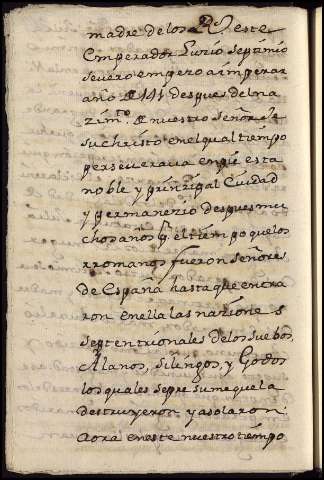 madre delos R.s este
Emperador Luzio septimio
severo empezo a imperar
año de 141 despues del na
zim.to de nuestro señor Je
su christo en el qual tiempo
perseverava en pie esta
noble y prinzipal Ciudad
y permanezio despues mu
chos años q. el tiempo que los
rromanos fueron señores
de España hasta que entra
ron en ella las naziones
septentrionales delos suebos
Alanos, silingos, y Godos
los quales se presume que la
destruyeron y asolaron.
aora en este nuestro tiempo